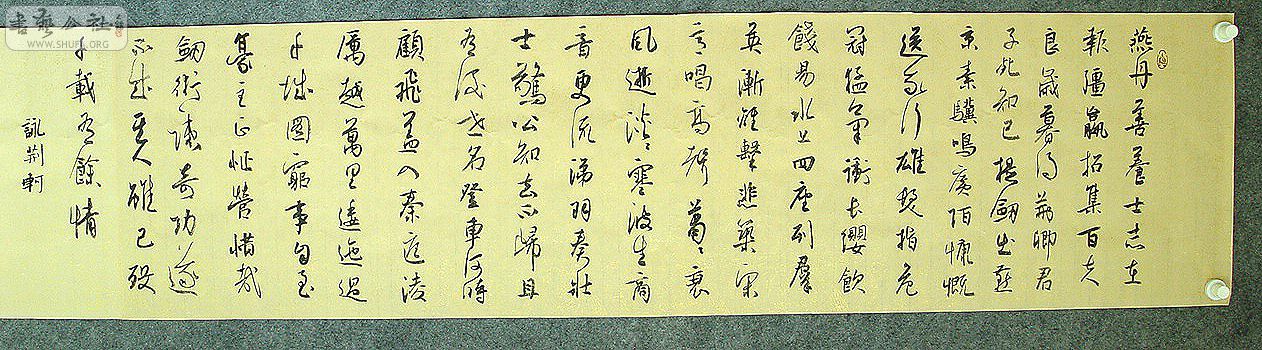 燕丹善養士志在
報彊嬴招集百夫
良歲暮得荊卿君
子死知己提劒出燕
京素驥鳴廣陌慷慨
送我行雄髮指危
冠猛氣衝長纓飲
餞易水上四座列羣
英漸離擊悲築宋
意唱高聲蕭〻哀
風逝淡〻寒波生商
音更流涕羽奏壯
士驚心知去不歸且
有後世名登車何時
顧飛蓋入秦庭凌
厲越萬里逶迤過
千城圖窮事自至
豪主正怔營惜哉
劒術疎奇功遂
不成其人雖已歿
千載有餘情
詠荊軻
書藝公社
WWW.SHUFA.ORG